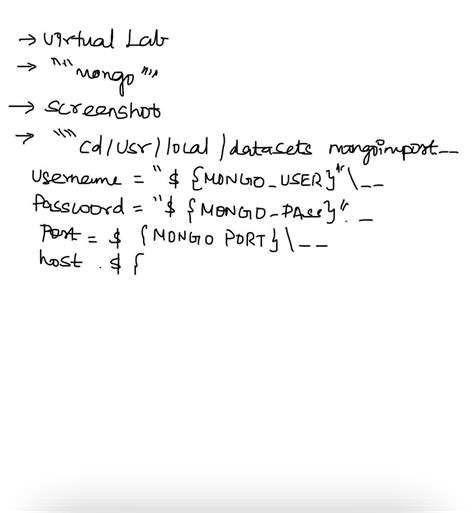 → virtual Lab
→ """mongo"""
→ screenshot
→ """" cd/usr/local/datasets mongoimport--
username = "${MONGO_USER}"\--
Password = "${MONGO-PASS}" --
Port = ${MONGO PORT}\--
host . ${